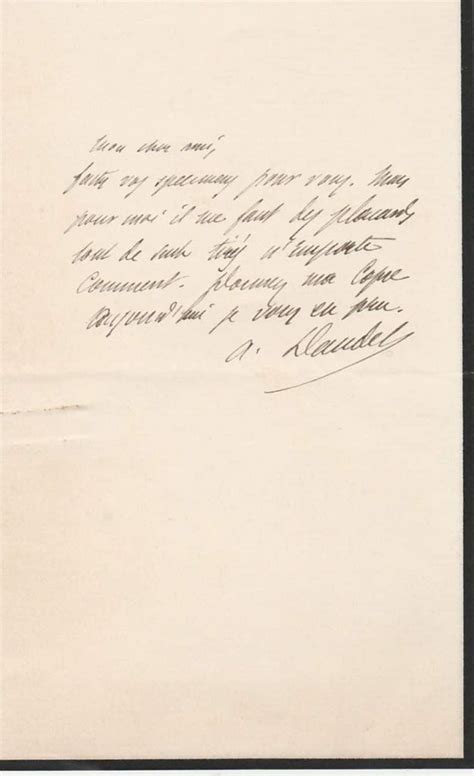 Mon cher ami,
faites vos specimens pour vous. Mais
pour moi il me faut des placards
tout de suite tirés n'importe
comment. Donnez ma copie
aujourd'hui je vous en prie.
A. Daudet